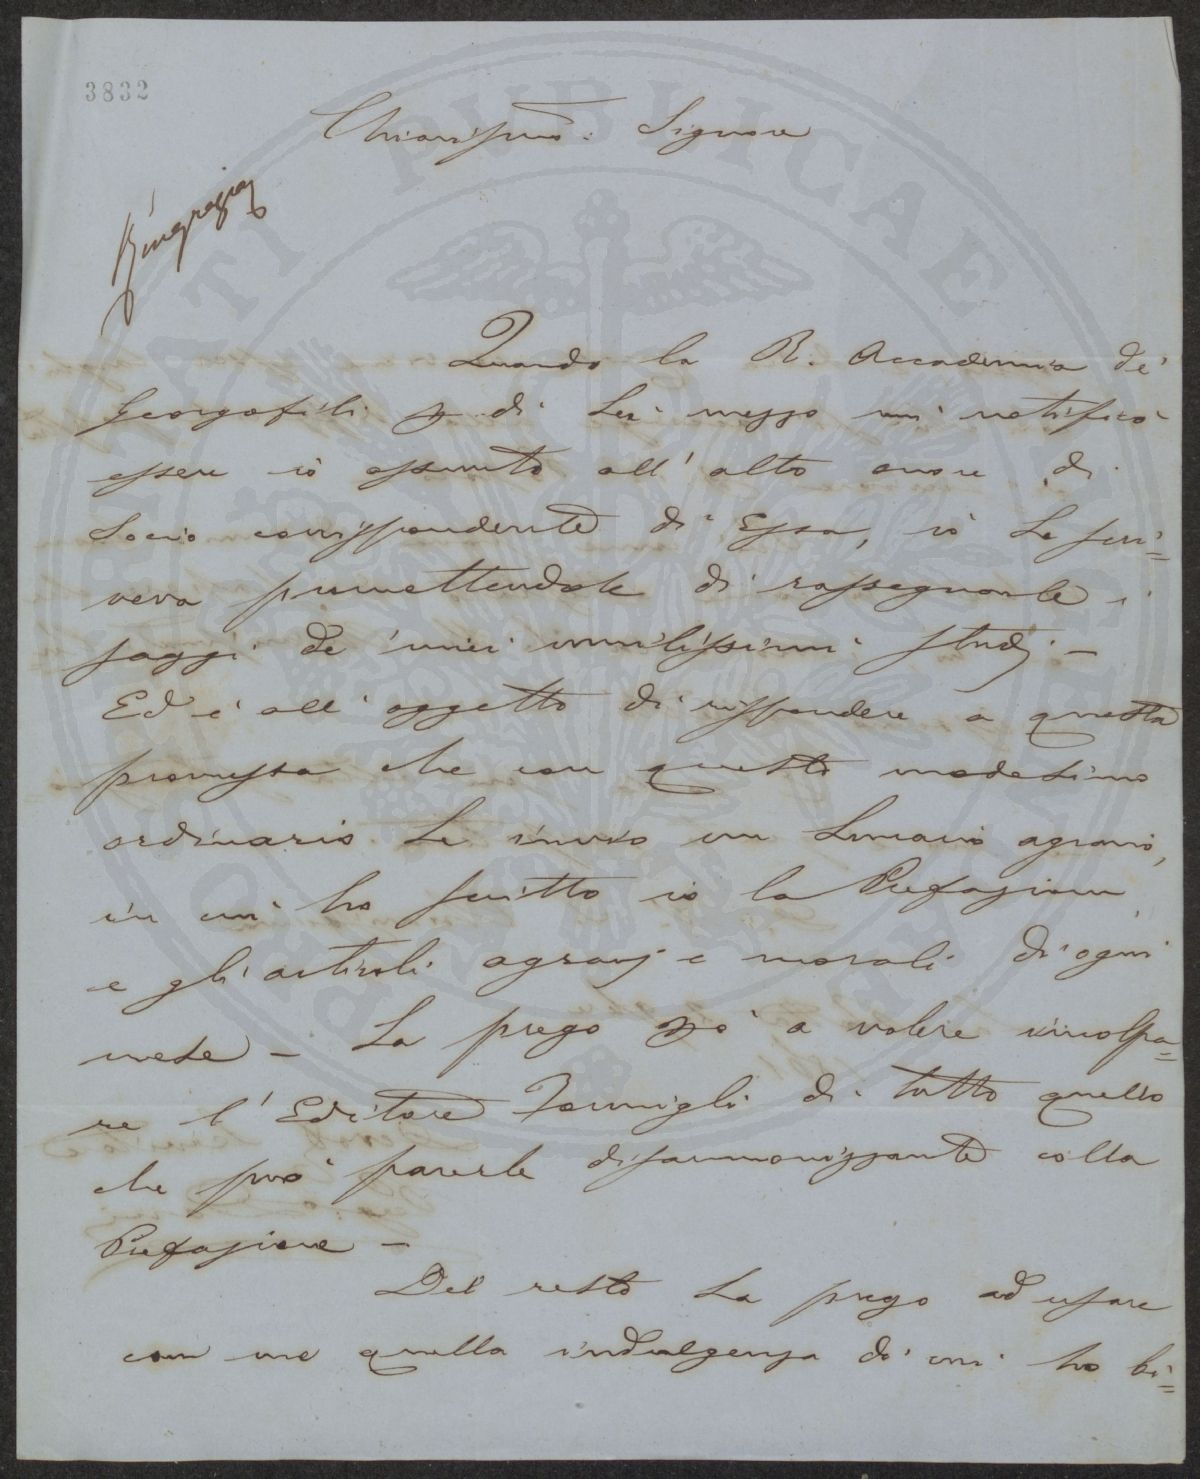 3832
Chiarissmo: Signore
Ringraziar
Quando la R. Accademia de'
Georgofili p. di Lei mezzo mi notificò
essere io assunto all'alto onore di
Socio corrispondente di Essa, io Le scri=
veva promettendole di rassegnarle i
saggi de' miei umilissimi studj –
Ed è all'oggetto di rispondere a questa
promessa che con questo medesimo
ordinario Le invio un Lunario agrario,
in cui ho scritto io la Prefazione,
e gli articoli agrarj e morali di ogni
mese – La prego però a volere incolpa=
re l'Editore Formigli di tutto quello
che può parerle disarmonizzante colla
Prefazione –
Del resto La prego ad usare
con me quella indulgenza di cui ho bi=
PRO PUBLICAE